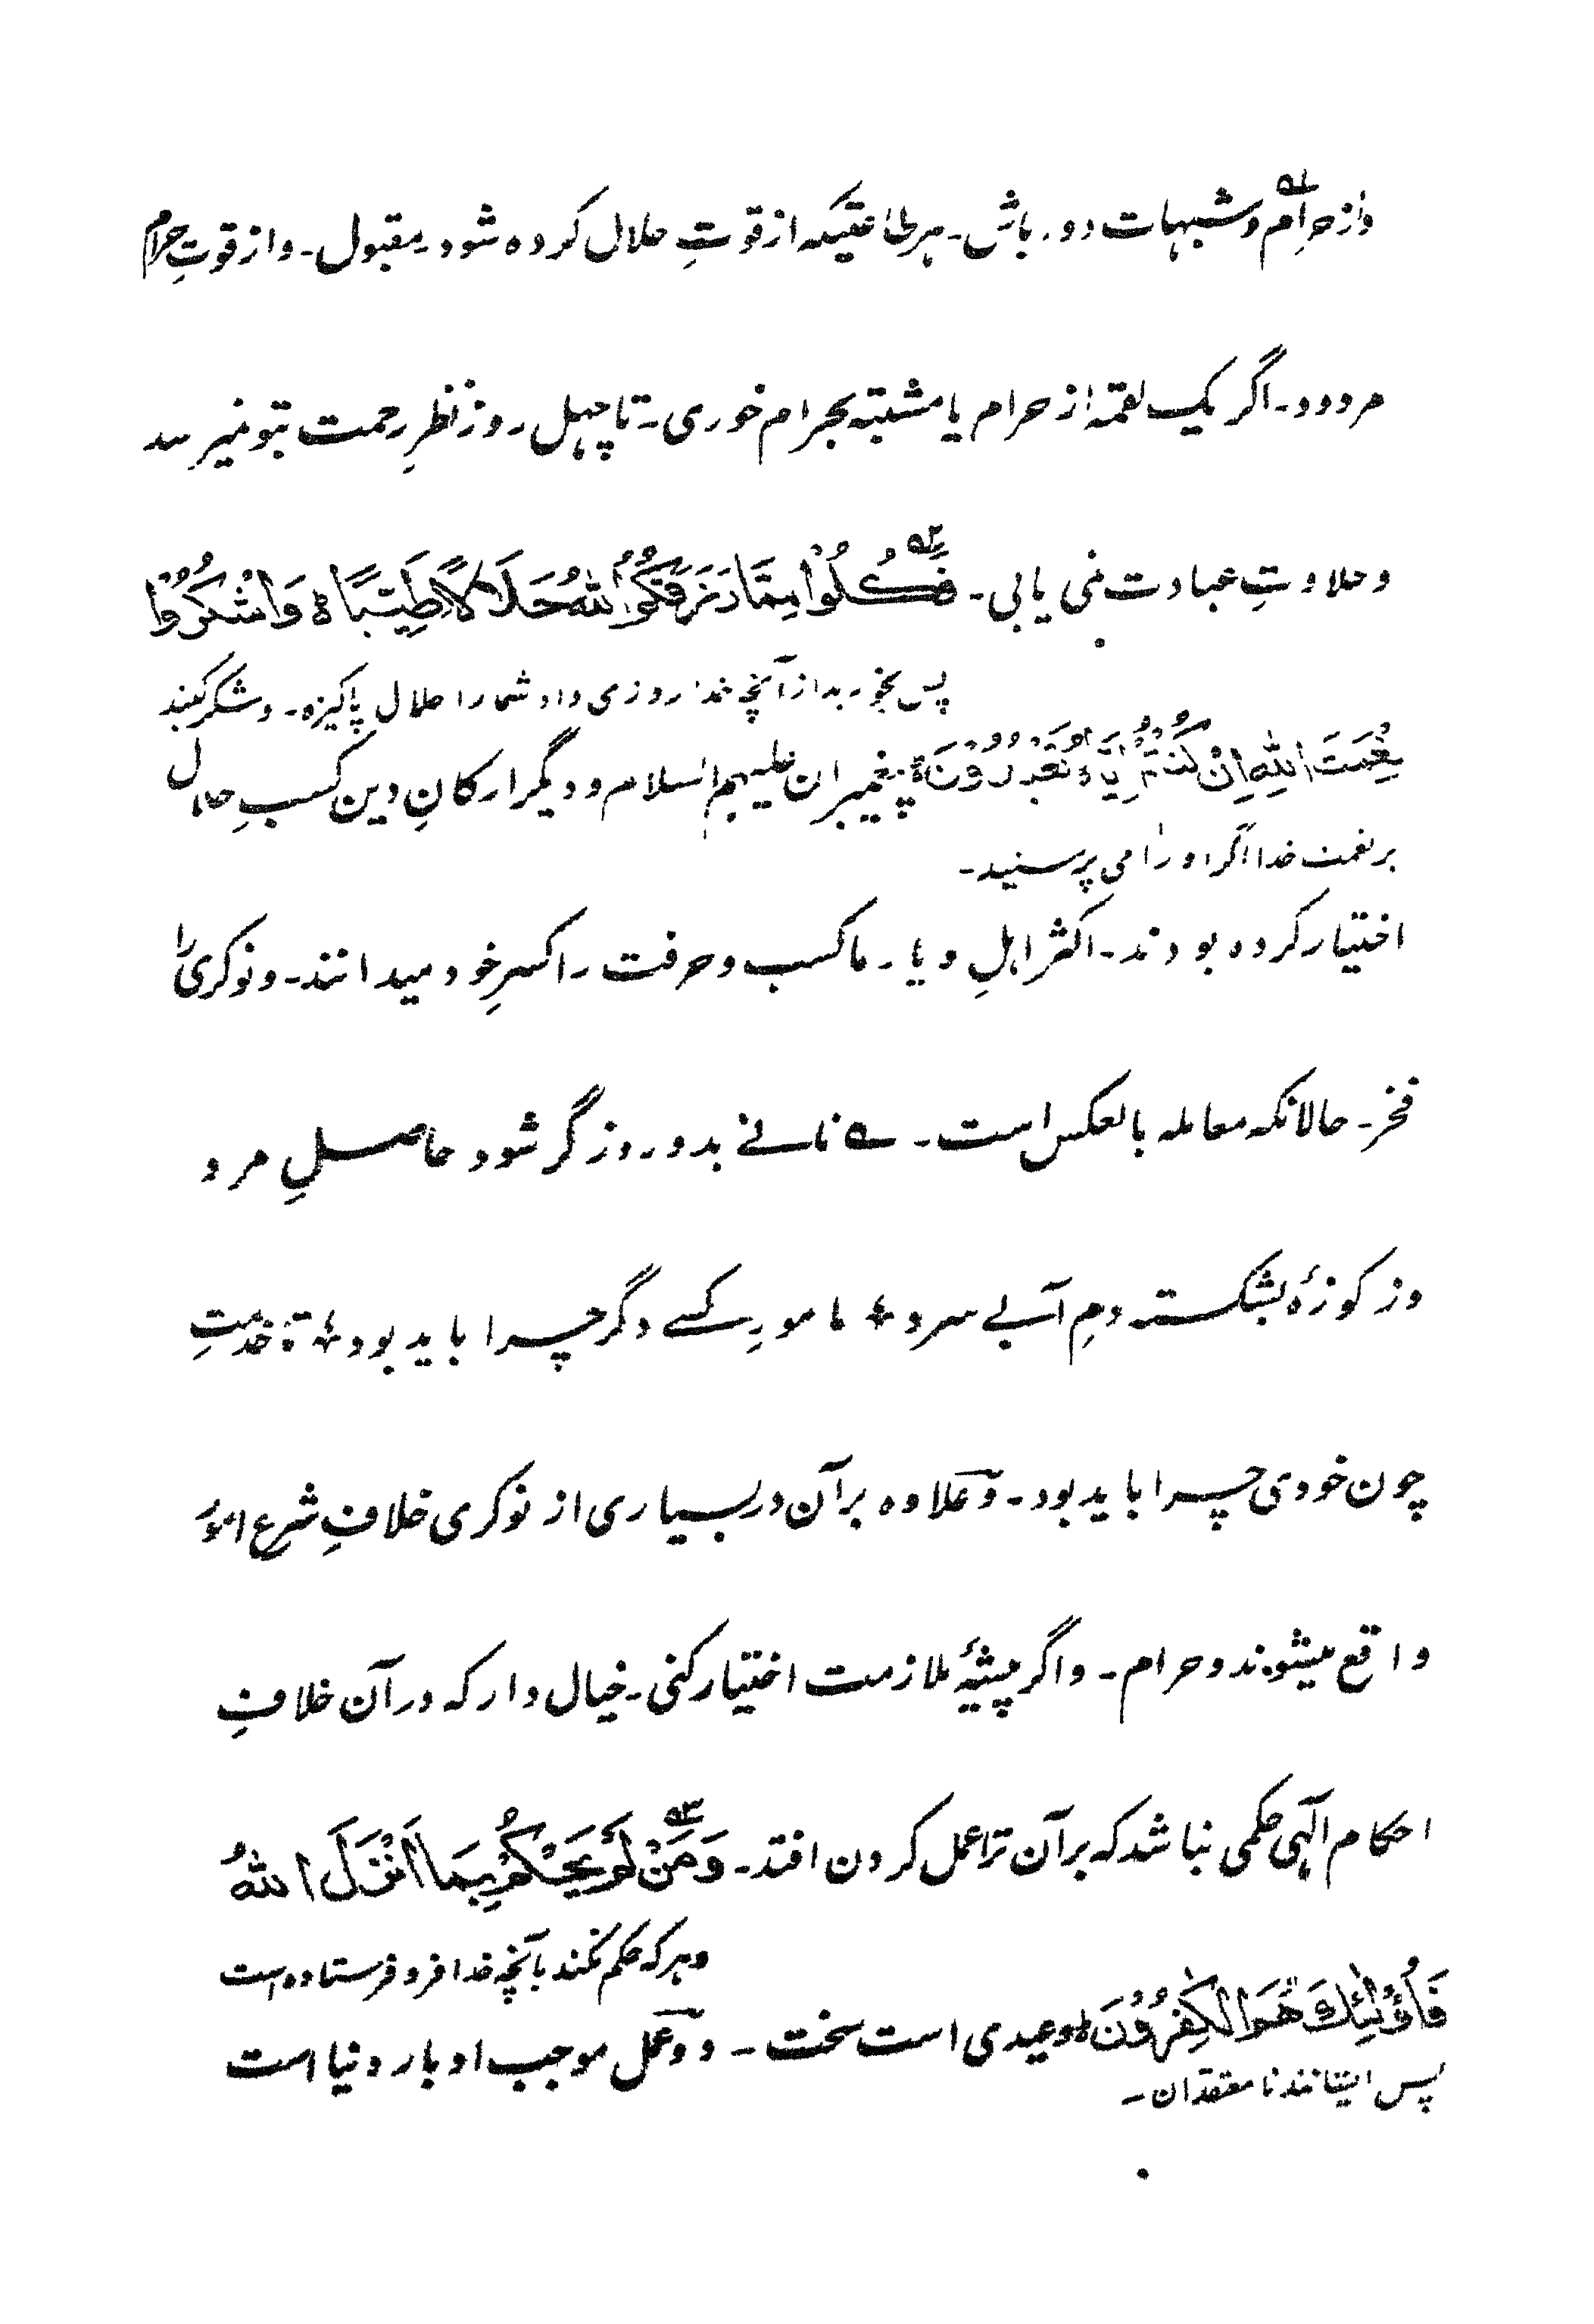 ۹۱
واز حرام و شبہات دور باش۔ ہر طاعتیکہ از قوتِ حلال کردہ شود۔ مقبول۔ و از قوتِ حرام
مردود۔ اگر یک لقمہ از حرام یا مشتبہ بحرام خوری۔ تا چہل روز نظرِ رحمت بتو نمیرسد
وحلاوتِ عبادت نمی یابی۔ ۹۲ فَكُلُوْا مِمَّا رَزَقَكُمُ اللّٰهُ حَلَالًا طَيِّبًا ۃ وَاشْكُرُوْا
پس بخورید از آنچہ خدا روزی داد شما را حلال پاکیزہ۔ و شکر کنید
نِعْمَتَ اللّٰهِ اِنْ كُنْتُمْ اِيَّاهُ تَعْبُدُوْنَ ۃ پیغمبران علیہم السلام و دیگر ارکانِ دین کسبِ حلال
بر نعمت خدا اگر او را می پرستید۔
اختیار کردہ بودند۔ اکثر اہلِ دیار ما کسب و حرفت را کسرِ خود میدانند۔ و نوکری را
فخر۔ حالانکہ معاملہ بالعکس است۔ ؎ نانے بدو روز گر شود حاصلِ مرد
وز کوزۂ بشکستہ دمِ آبے سرد ؞ مامورِ کسے دگر چرا باید بود ؞ تا خدمتِ
چون خودی چرا باید بود۔ و علاوہ بر آن در بسیاری از نوکری خلافِ شرع امور
واقع میشوند و حرام۔ و اگر پیشۂ ملازمت اختیار کنی۔ خیال دار کہ در آن خلافِ
احکام الٰہی حکمی نباشد کہ بر آن ترا عمل کردن افتد۔ ۹۳ وَمَنْ لَّمْ يَحْكُمْ بِمَا اَنْزَلَ اللّٰهُ
و ہر کہ حکم نکند بآنچہ خدا فرو فرستادہ است
فَاُولٰٓئِكَ هُمُ الْكٰفِرُوْنَ ۃ وعیدی است سخت۔ و عمل موجب ادبار دنیا است
پس ایشانند نا معتقدان۔